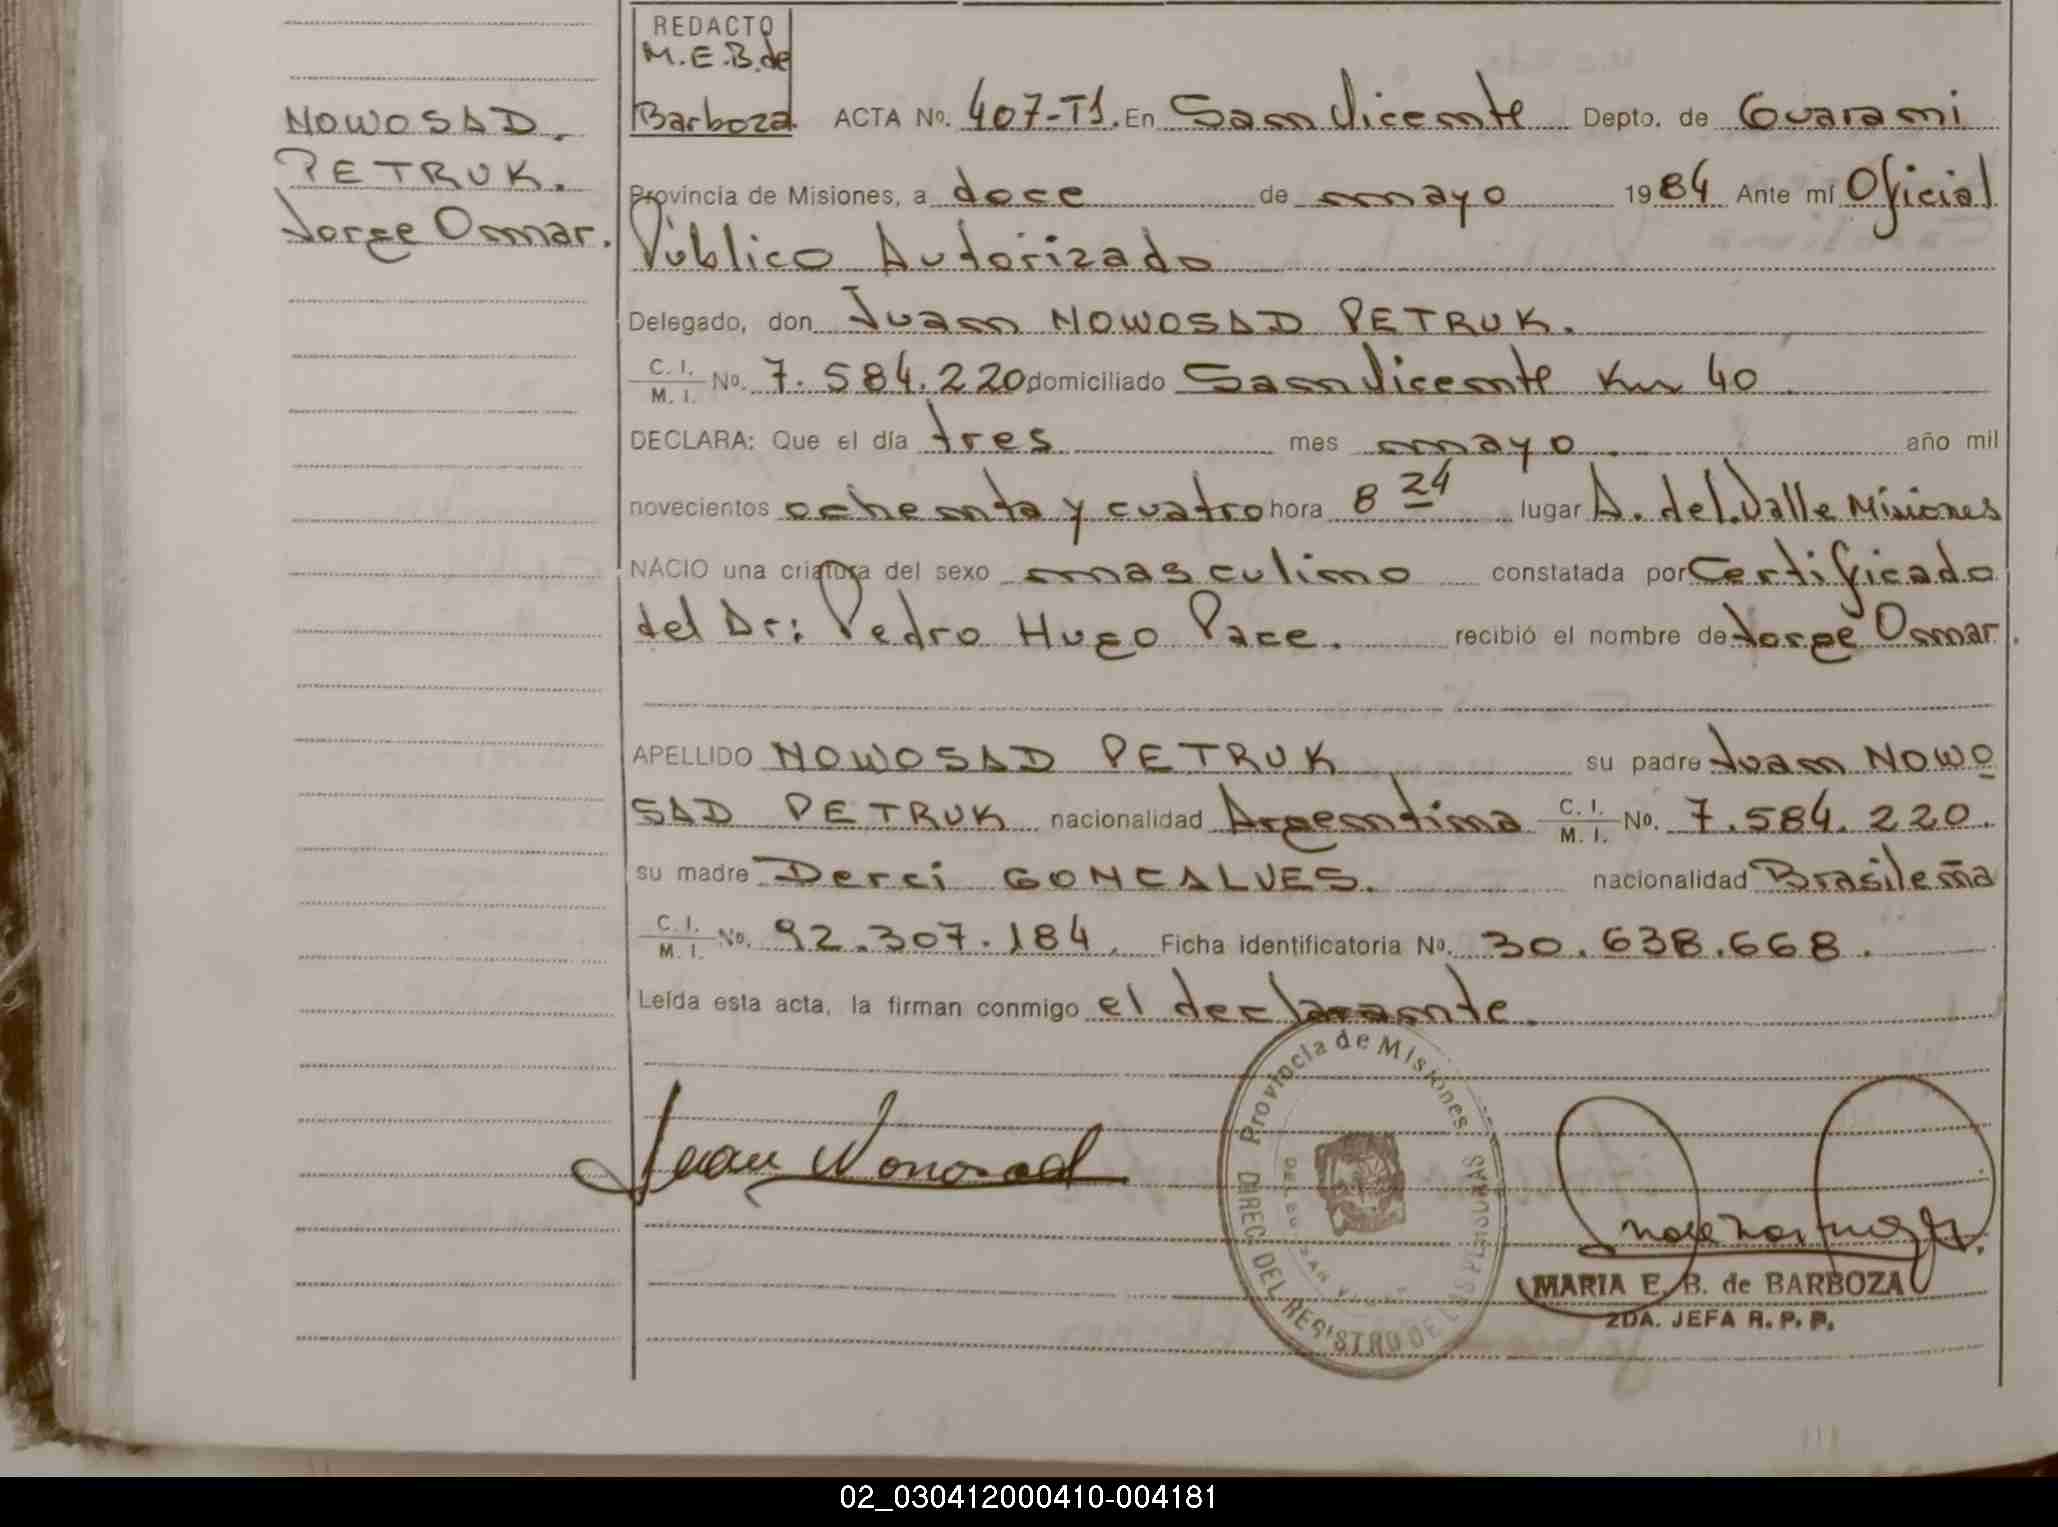 REDACTO
M.E.B.de
Barboza
NOWOSAD
PETRUK.
Jorge Osmar.
ACTA No. 407-T1. En San Vicente Depto. de Guarani
Provincia de Misiones, a doce de mayo 1984 Ante mí Oficial
Público Autorizado
Delegado, don Juan NOWOSAD PETRUK.
C. I. / M. I. No. 7.584.220 domiciliado San Vicente Km 40
DECLARA: Que el día tres mes mayo. año mil
novecientos ochenta y cuatro hora 8 24 lugar A. del Valle Misiones
NACIO una criatura del sexo masculino constatada por Certificado
del Dr: Pedro Hugo Pace. recibió el nombre de Jorge Osmar.
APELLIDO NOWOSAD PETRUK su padre Juan NOWO
SAD PETRUK nacionalidad Argentina C. I. / M. I. No. 7.584.220.
su madre Derci GONCALVES. nacionalidad Brasileña
C. I. / M. I. No. 92.307.184. Ficha identificatoria No. 30.638.668.
Leída esta acta, la firman conmigo el declarante.
Juan Nowosad
Provincia de Misiones
DIREC. DEL REGISTRO DE LAS PERSONAS
MARIA E. B. de BARBOZA
2DA. JEFA R. P. P.
02_030412000410-004181